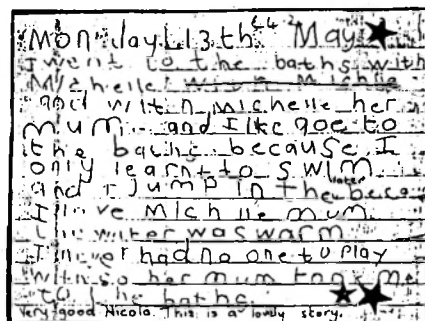 Monday 13th May
I went to the baths with
Michelle with Michlle
and with michelle her
mum and I like goe to
the baths because I
only learnt to swim
and I jump in the
I love Mich lle mum
the water was warm
I never had no one to play
with so her mum took me
to the baths.
Very good Nicola. This is a lovely story.